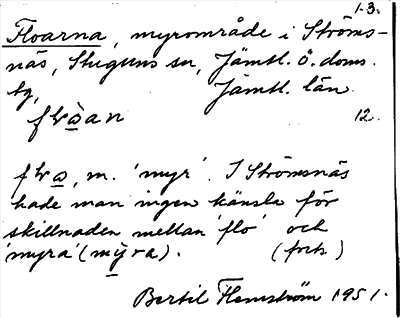 1-3.
Floarna, myrområde i Ströms-
näs, Stuguns sn, Jämtl. ö. doms.
tg, Jämtl. län.
12.
I Strömsnäs
hade man ingen känsla för
skillnaden mellan 'flo' och
'myra' (mỳra). (forts.)
Bertil Flemström 1951.